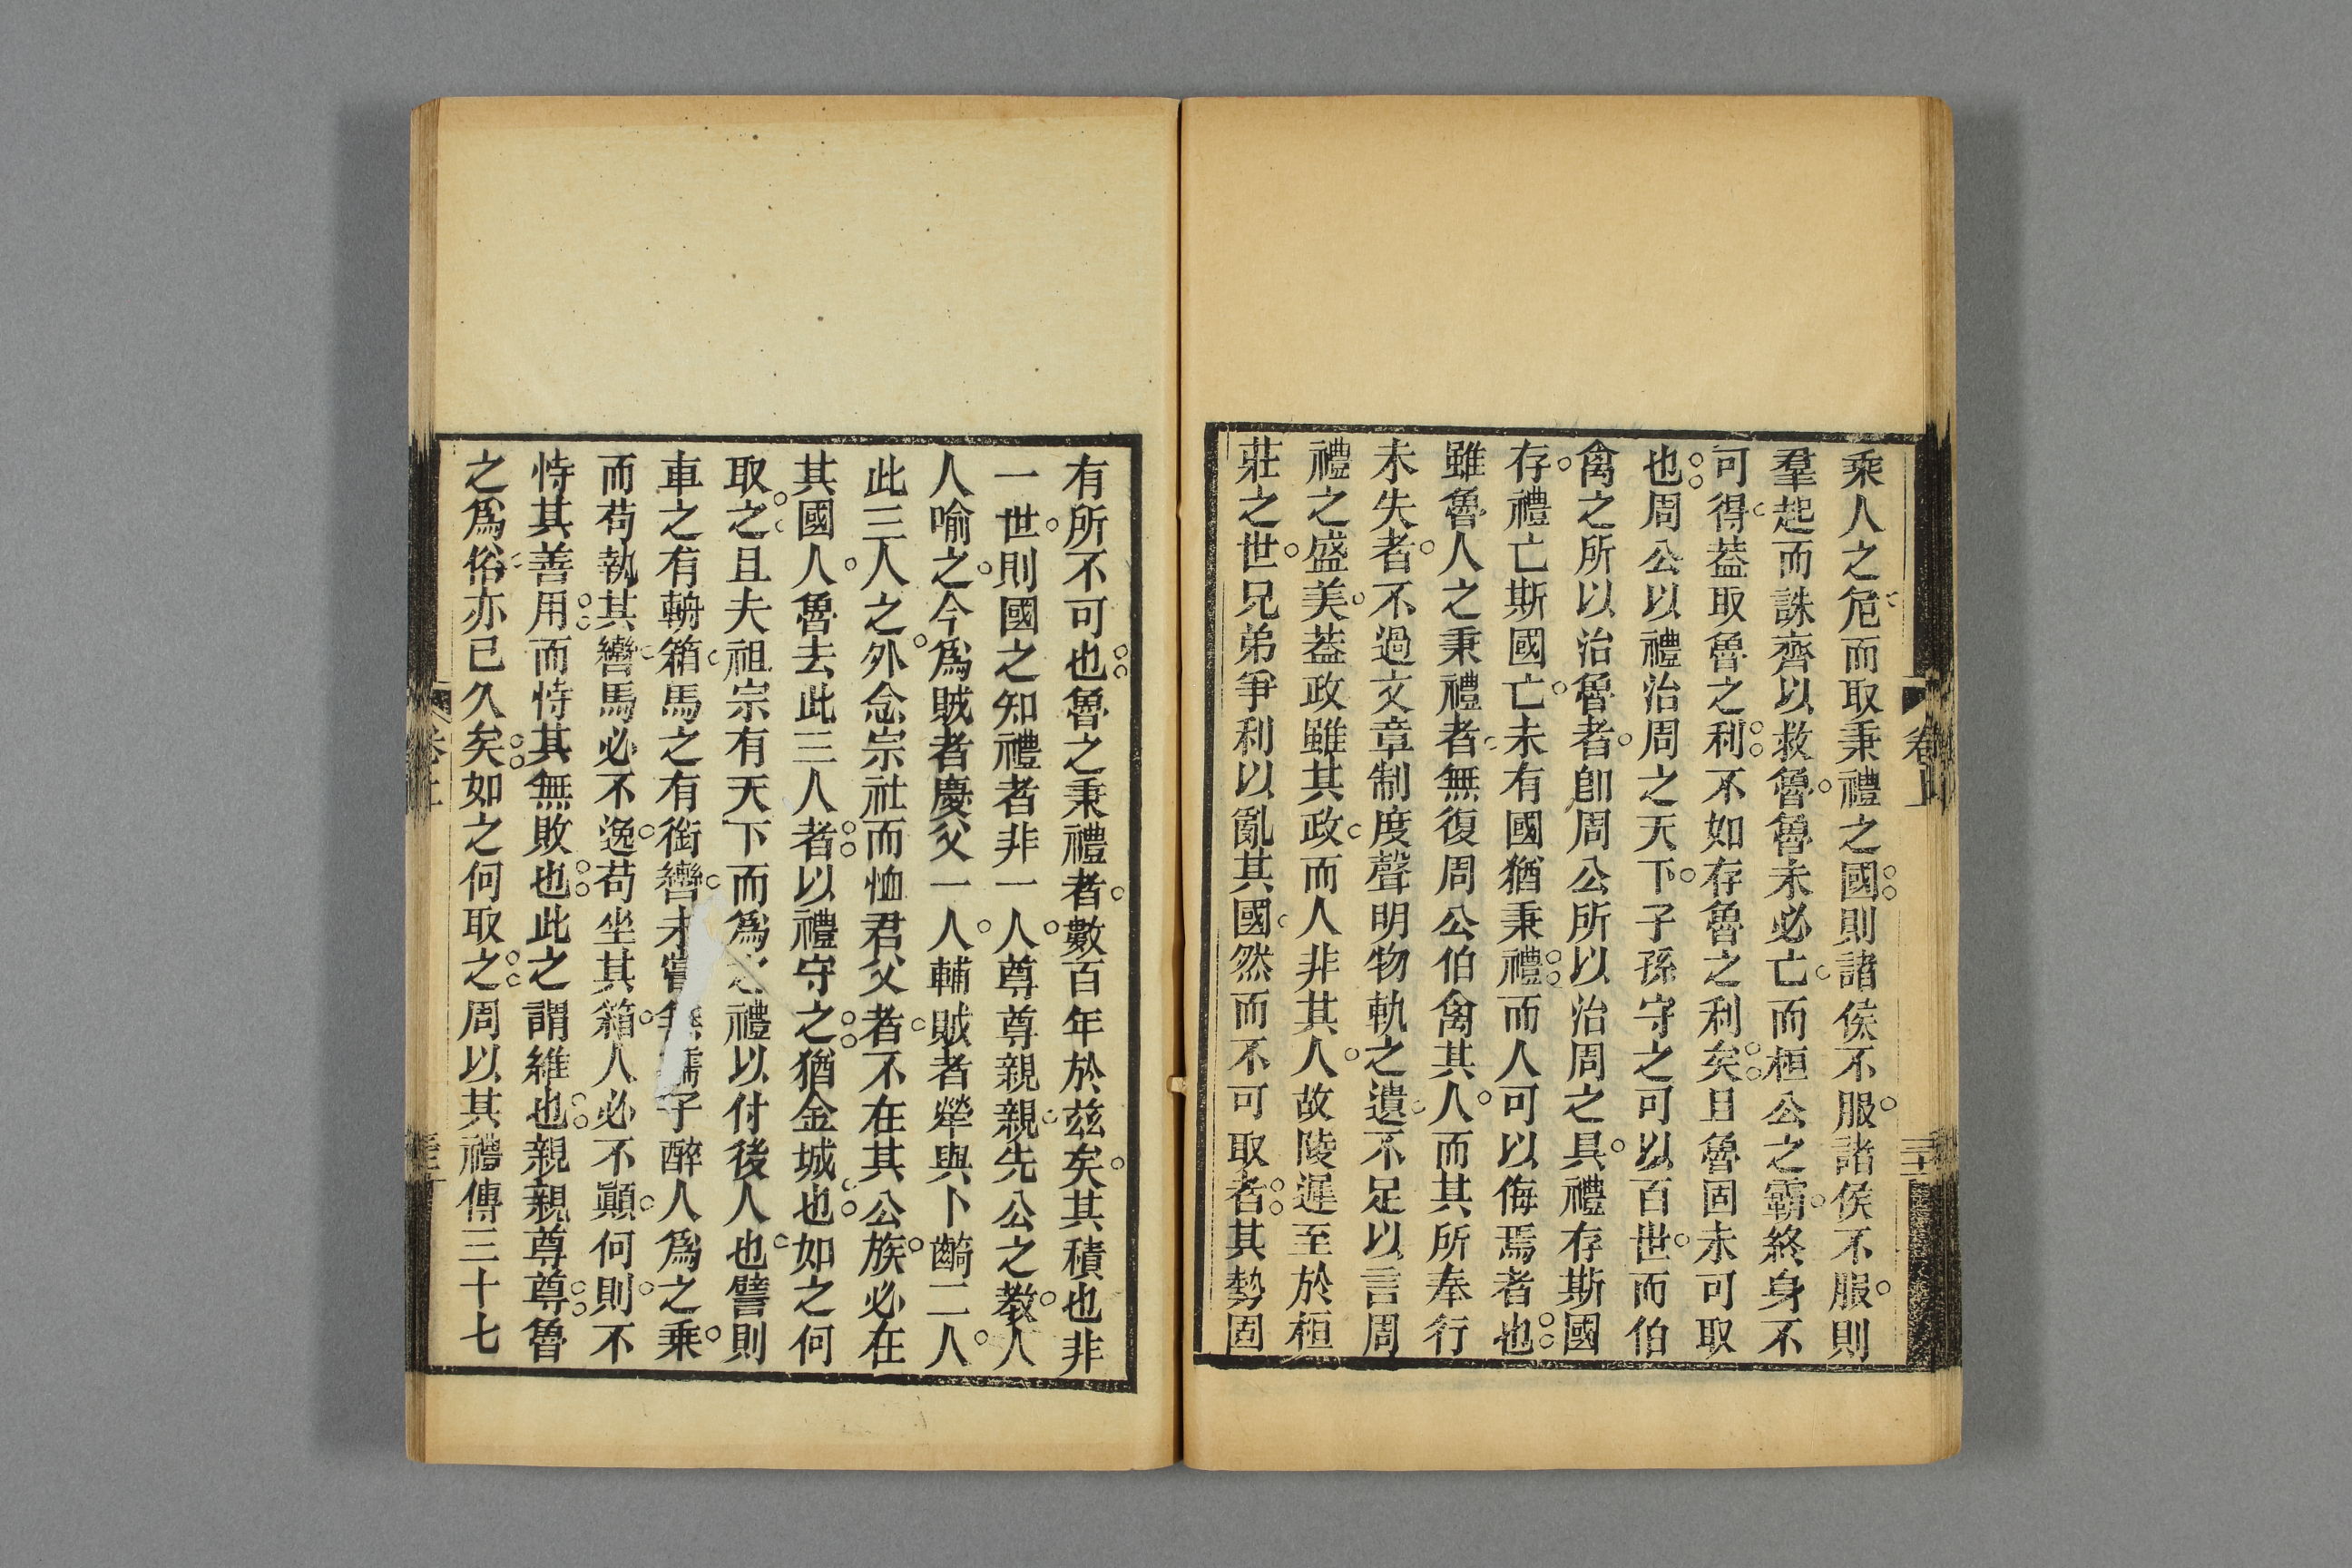 乘人之危而取秉禮之國則諸侯不服諸侯不服則
羣起而誅齊以救魯魯未必亡而桓公之霸終身不
可得葢取魯之利不如存魯之利矣且魯固未可取
也周公以禮治周之天下子孫守之可以百世而伯
禽之所以治魯者卽周公所以治周之具禮存斯國
存禮亡斯國亡未有國猶秉禮而人可以侮焉者也
雖魯人之秉禮者無復周公伯禽其人而其所奉行
未失者不過文章制度聲明物軌之遺不足以言周
禮之盛美葢政雖其政而人非其人故陵遲至於桓
莊之世兄弟爭利以亂其國然而不可取者其勢固
有所不可也魯之秉禮者數百年於茲矣其積也非
一世則國之知禮者非一人尊尊親親先公之教人
人喻之今爲賊者慶父一人輔賊者犖與卜齮二人
此三人之外念宗社而恤君父者不在其公族必在
其國人魯去此三人者以禮守之猶金城也如之何
取之且夫祖宗有天下而爲之禮以付後人也譬則
車之有輈箱馬之有銜轡未嘗無孺子醉人爲之乘
而苟執其轡馬必不逸苟坐其箱人必不顚何則不
恃其善用而恃其無敗也此之謂維也親親尊尊魯
之爲俗亦已久矣如之何取之周以其禮傳三十七
卷上